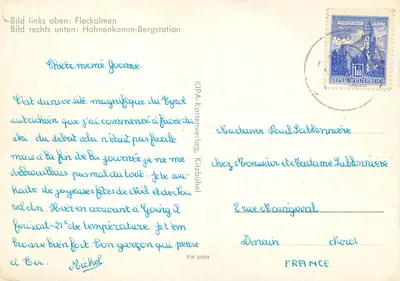 Bild links oben: Fleckalmen
Bild rechts unten: Hahnenkamm-Bergstation
Chère mémé Yvonne
C'est dans ce site magnifique du Tyrol
autrichien que j'ai commencé à faire du
ski. Au début cela n'était pas facile
mais à la fin de la journée je me
débrouillais pas mal du tout. Je te sou-
haite de joyeuses fêtes de Noël et de Nou-
vel An. Hier en arrivant à Going il
faisait -21° de température. Je t'em-
brasse bien fort. Ton garçon qui pense
à toi. Michel
KIPA-Kartenverlag, Kitzbühel
FW
REPUBLIK ÖSTERREICH
Madame Paul
chez Monsieur et Madame
rue
Denain Nord
FRANCE